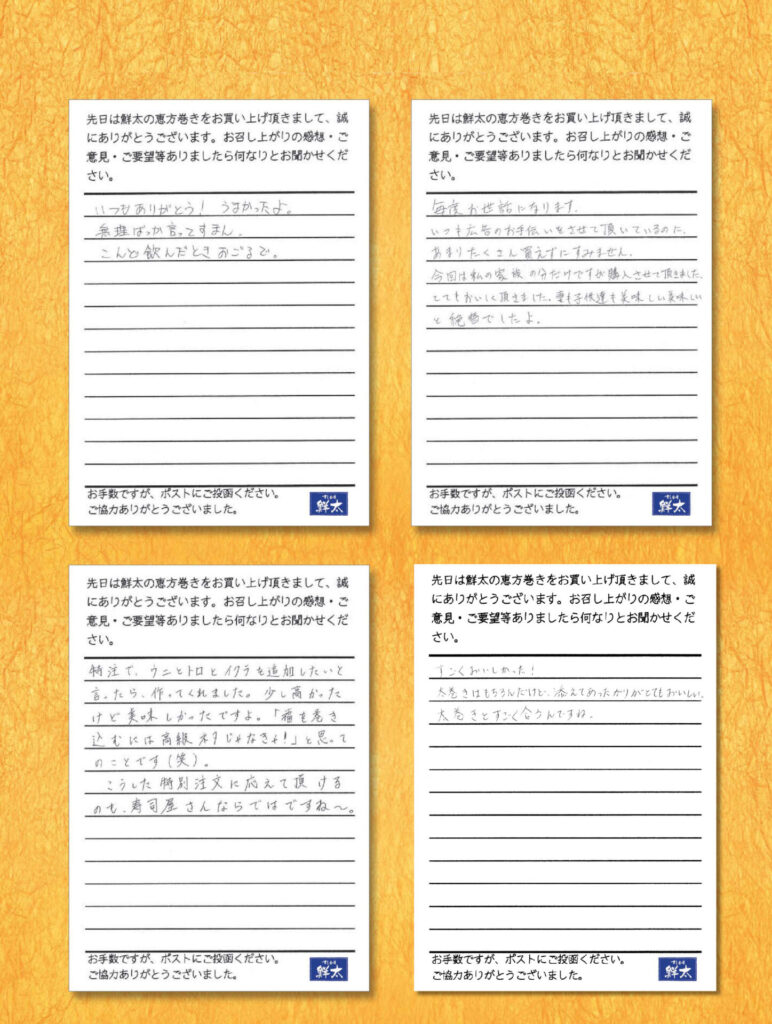 先日は鮮太の恵方巻きをお買い上げ頂きまして、誠
にありがとうございます。お召し上がりの感想・ご
意見・ご要望等ありましたら何なりとお聞かせくだ
さい。
いつもありがとう! うまかったよ。
無理ばっか言ってすまん。
こんど飲んだときおごるで。
お手数ですが、ポストにご投函ください。
ご協力ありがとうございました。
鮮太
先日は鮮太の恵方巻きをお買い上げ頂きまして、誠
にありがとうございます。お召し上がりの感想・ご
意見・ご要望等ありましたら何なりとお聞かせくだ
さい。
毎度お世話になります。
いつも広告のお手伝いをさせて頂いているのに、
あまりたくさん買えずにすみません。
今回は私の家族の分だけですが購入させて頂きました。
とてもおいしく頂きました。妻も子供達も美味しい美味しい
と絶賛でしたよ。
お手数ですが、ポストにご投函ください。
ご協力ありがとうございました。
鮮太
先日は鮮太の恵方巻きをお買い上げ頂きまして、誠
にありがとうございます。お召し上がりの感想・ご
意見・ご要望等ありましたら何なりとお聞かせくだ
さい。
特注で、ウニとトロとイクラを追加したいと
言ったら、作ってくれました。少し高かった
けど美味しかったですよ。「福を巻き
込むには高級ネタじゃなきゃ!」と思って
のことです(笑)。
こうした特別注文に応えて頂けるの
も、寿司屋さんならではですね〜。
お手数ですが、ポストにご投函ください。
ご協力ありがとうございました。
鮮太
先日は鮮太の恵方巻きをお買い上げ頂きまして、誠
にありがとうございます。お召し上がりの感想・ご
意見・ご要望等ありましたら何なりとお聞かせくだ
さい。
すごくおいしかった!
太巻きはもちろんだけど、添えてあったガリがとてもおいしい。
太巻きとすごく合うんですね。
お手数ですが、ポストにご投函ください。
ご協力ありがとうございました。
鮮太